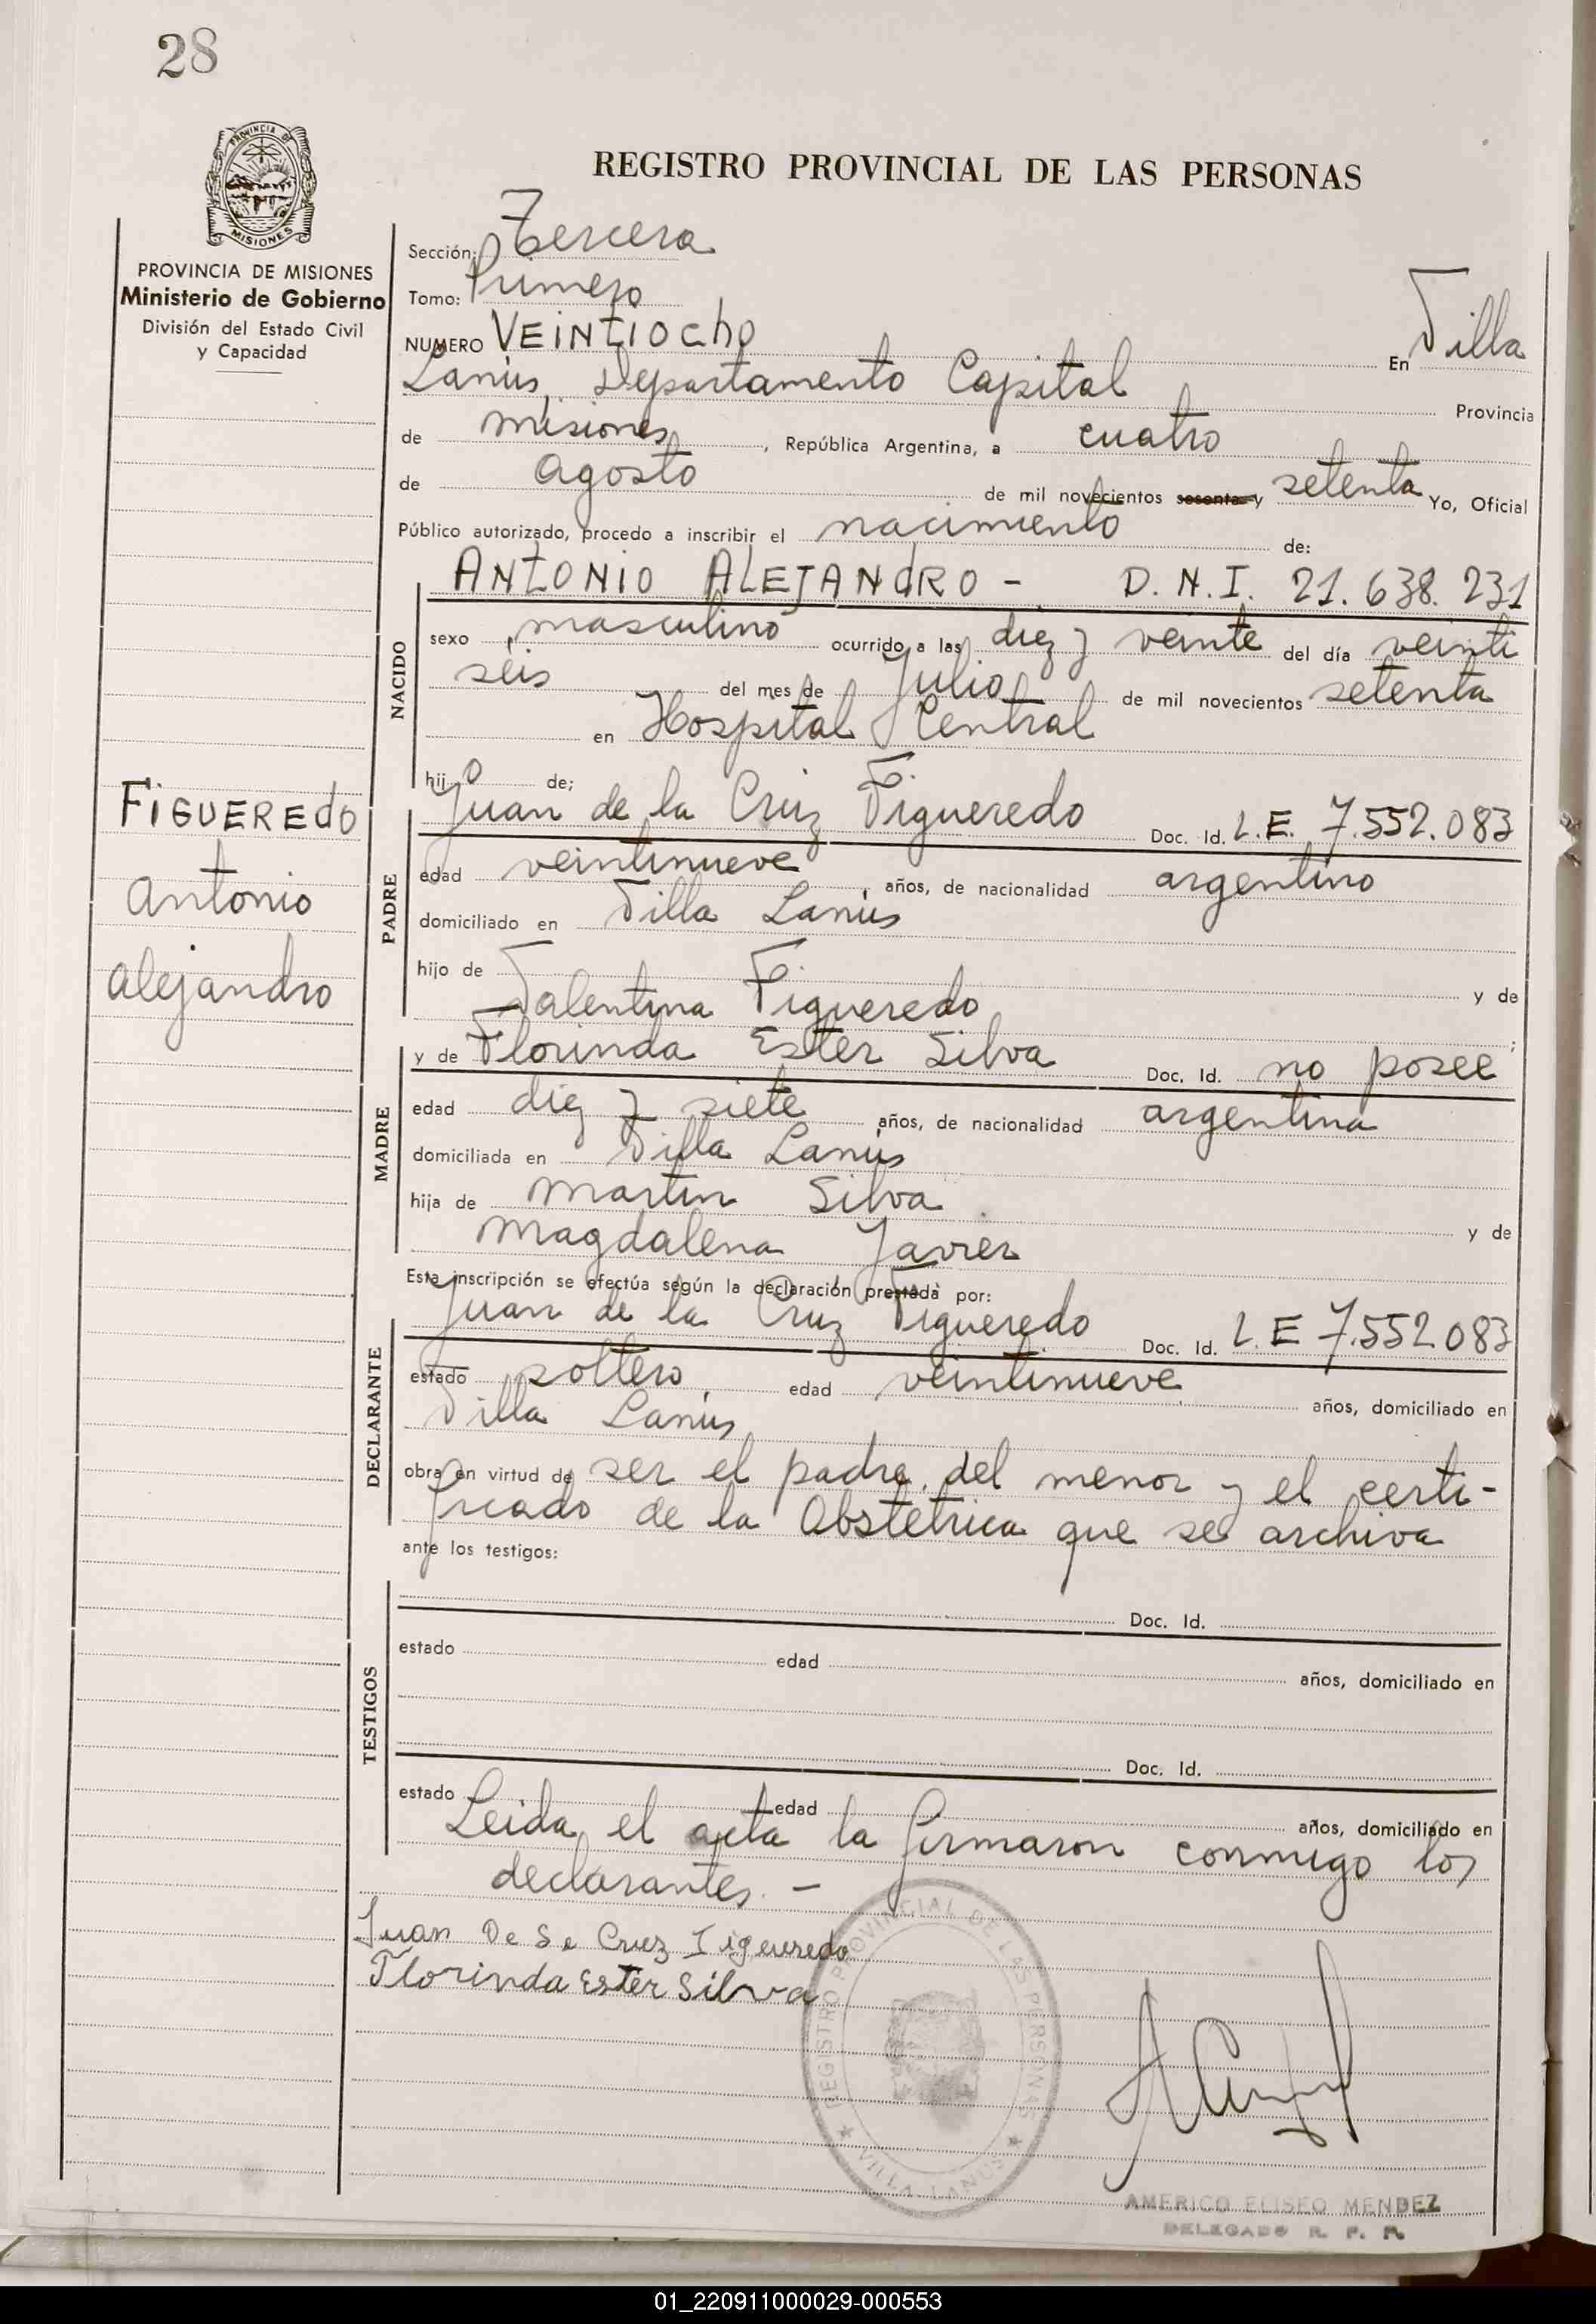 28
PROVINCIA DE
MISIONES
REGISTRO PROVINCIAL DE LAS PERSONAS
PROVINCIA DE MISIONES
Ministerio de Gobierno
División del Estado Civil
y Capacidad
Sección: Tercera
Tomo: Primero
NUMERO VEINTIOCHO En Villa
Lanús, Departamento Capital Provincia
de Misiones, República Argentina, a cuatro
de Agosto de mil novecientos sesenta y setenta Yo, Oficial
Público autorizado, procedo a inscribir el nacimiento de:
ANTONIO ALEJANDRO - D.N.I. 21.638.231
NACIDO
sexo masculino ocurrido a las diez y veinte del día veinti
séis del mes de Julio de mil novecientos setenta
en Hospital Central
hijo de;
FIGUEREDO
Antonio
Alejandro
PADRE
Juan de la Cruz Figueredo Doc. Id. L.E. 7.552.083
edad veintinueve, años, de nacionalidad argentino
domiciliado en Villa Lanús
hijo de y de
Valentina Figueredo;
MADRE
y de Florinda Ester Silva Doc. Id. no posee
edad diez y siete años, de nacionalidad argentina
domiciliada en Villa Lanús
hija de Martín Silva y de
Magdalena Javier
Esta inscripción se efectúa según la declaración prestada por:
DECLARANTE
Juan de la Cruz Figueredo Doc. Id. L.E 7.552.083
estado soltero, edad veintinueve años, domiciliado en
Villa Lanús
obra en virtud de ser el padre del menor y el certi-
ficado de la Obstétrica que se archiva
ante los testigos:
TESTIGOS
Doc. Id.
estado edad años, domiciliado en
Doc. Id.
estado edad años, domiciliado en
Leida el acta la firmaron conmigo los
declarantes. -
Juan De La Cruz Figueredo
Florinda Ester Silva
REGISTRO PROVINCIAL DE LAS PERSONAS
VILLA LANUS
AMERICO ELISEO MENDEZ
DELEGADO R. P. P.
01_220911000029-000553